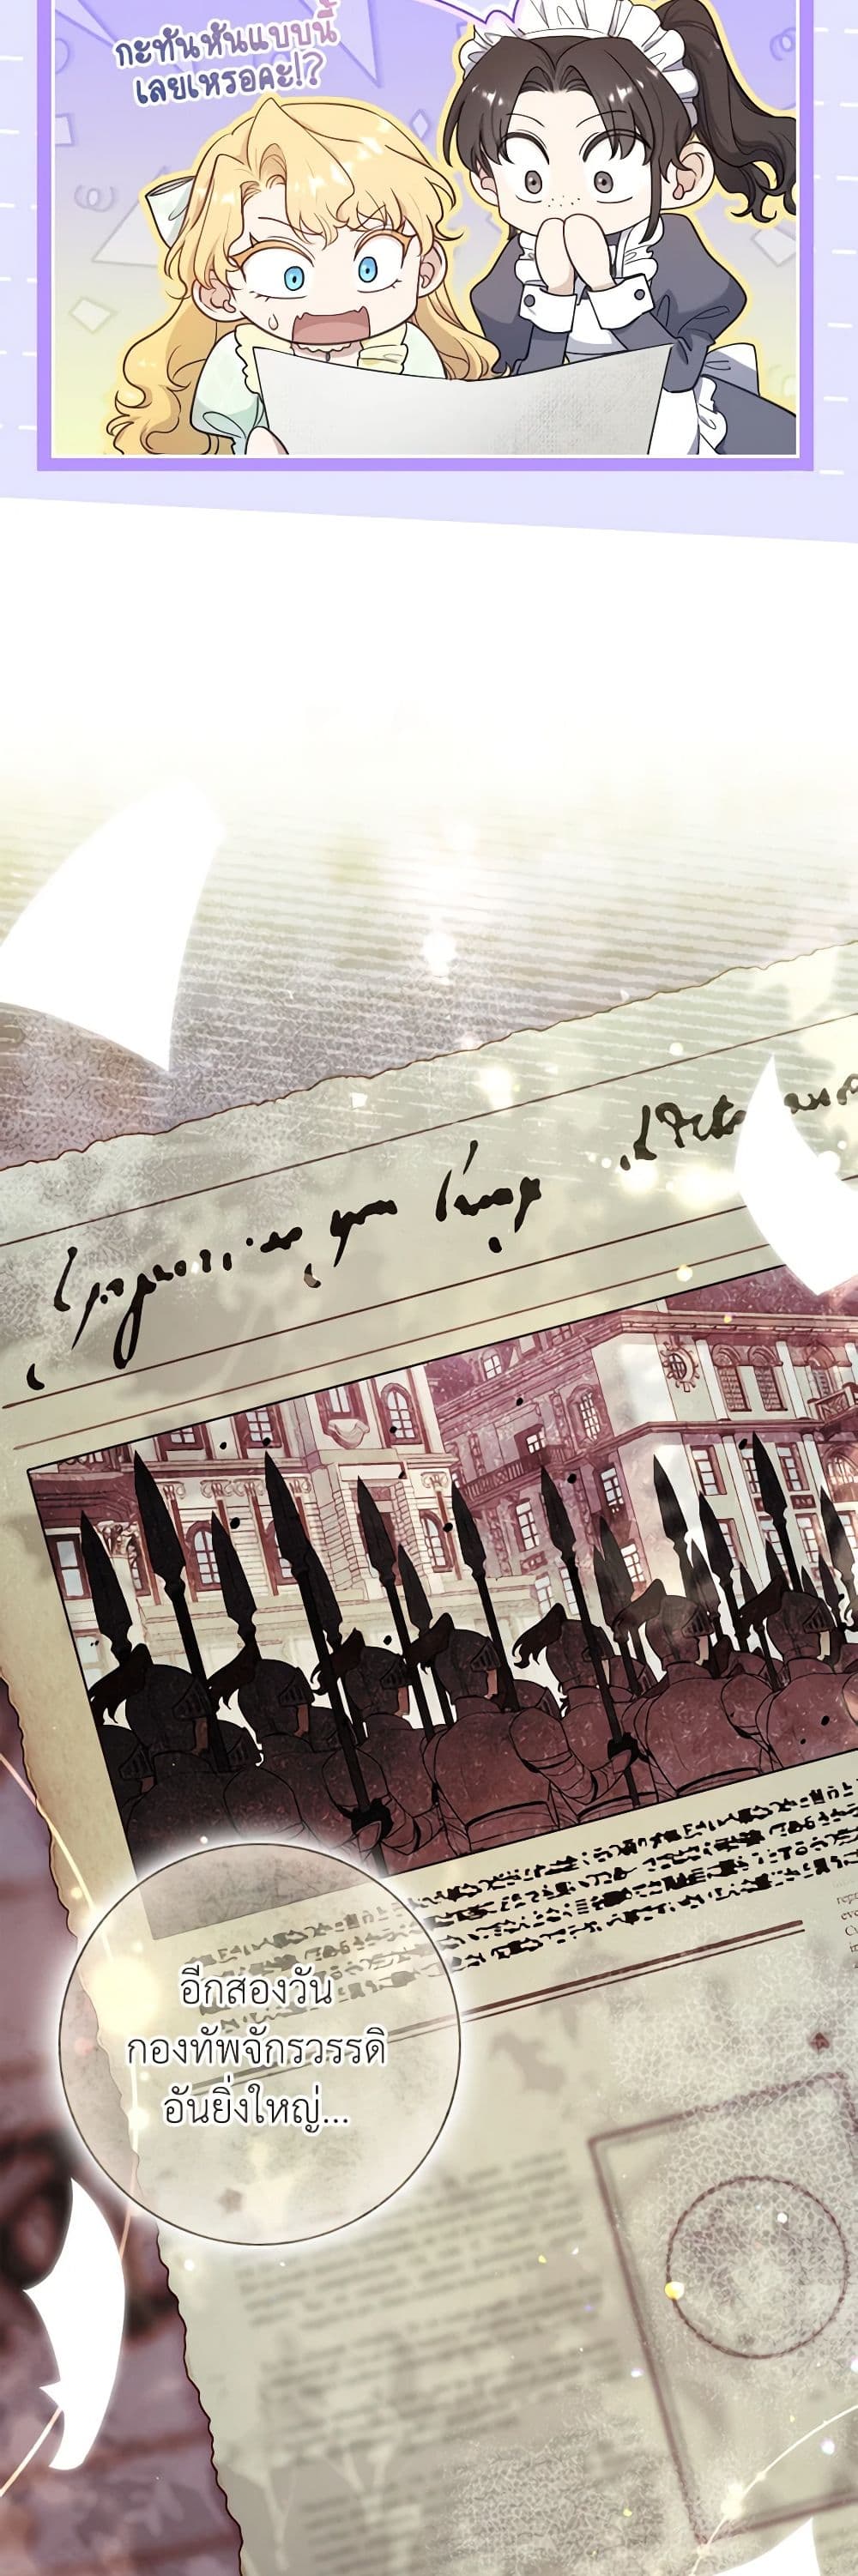 กะทันหันแบบนี้
เลยเหรอคะ!?
อีกสองวัน
กองทัพจักรวรรดิ
อันยิ่งใหญ่...